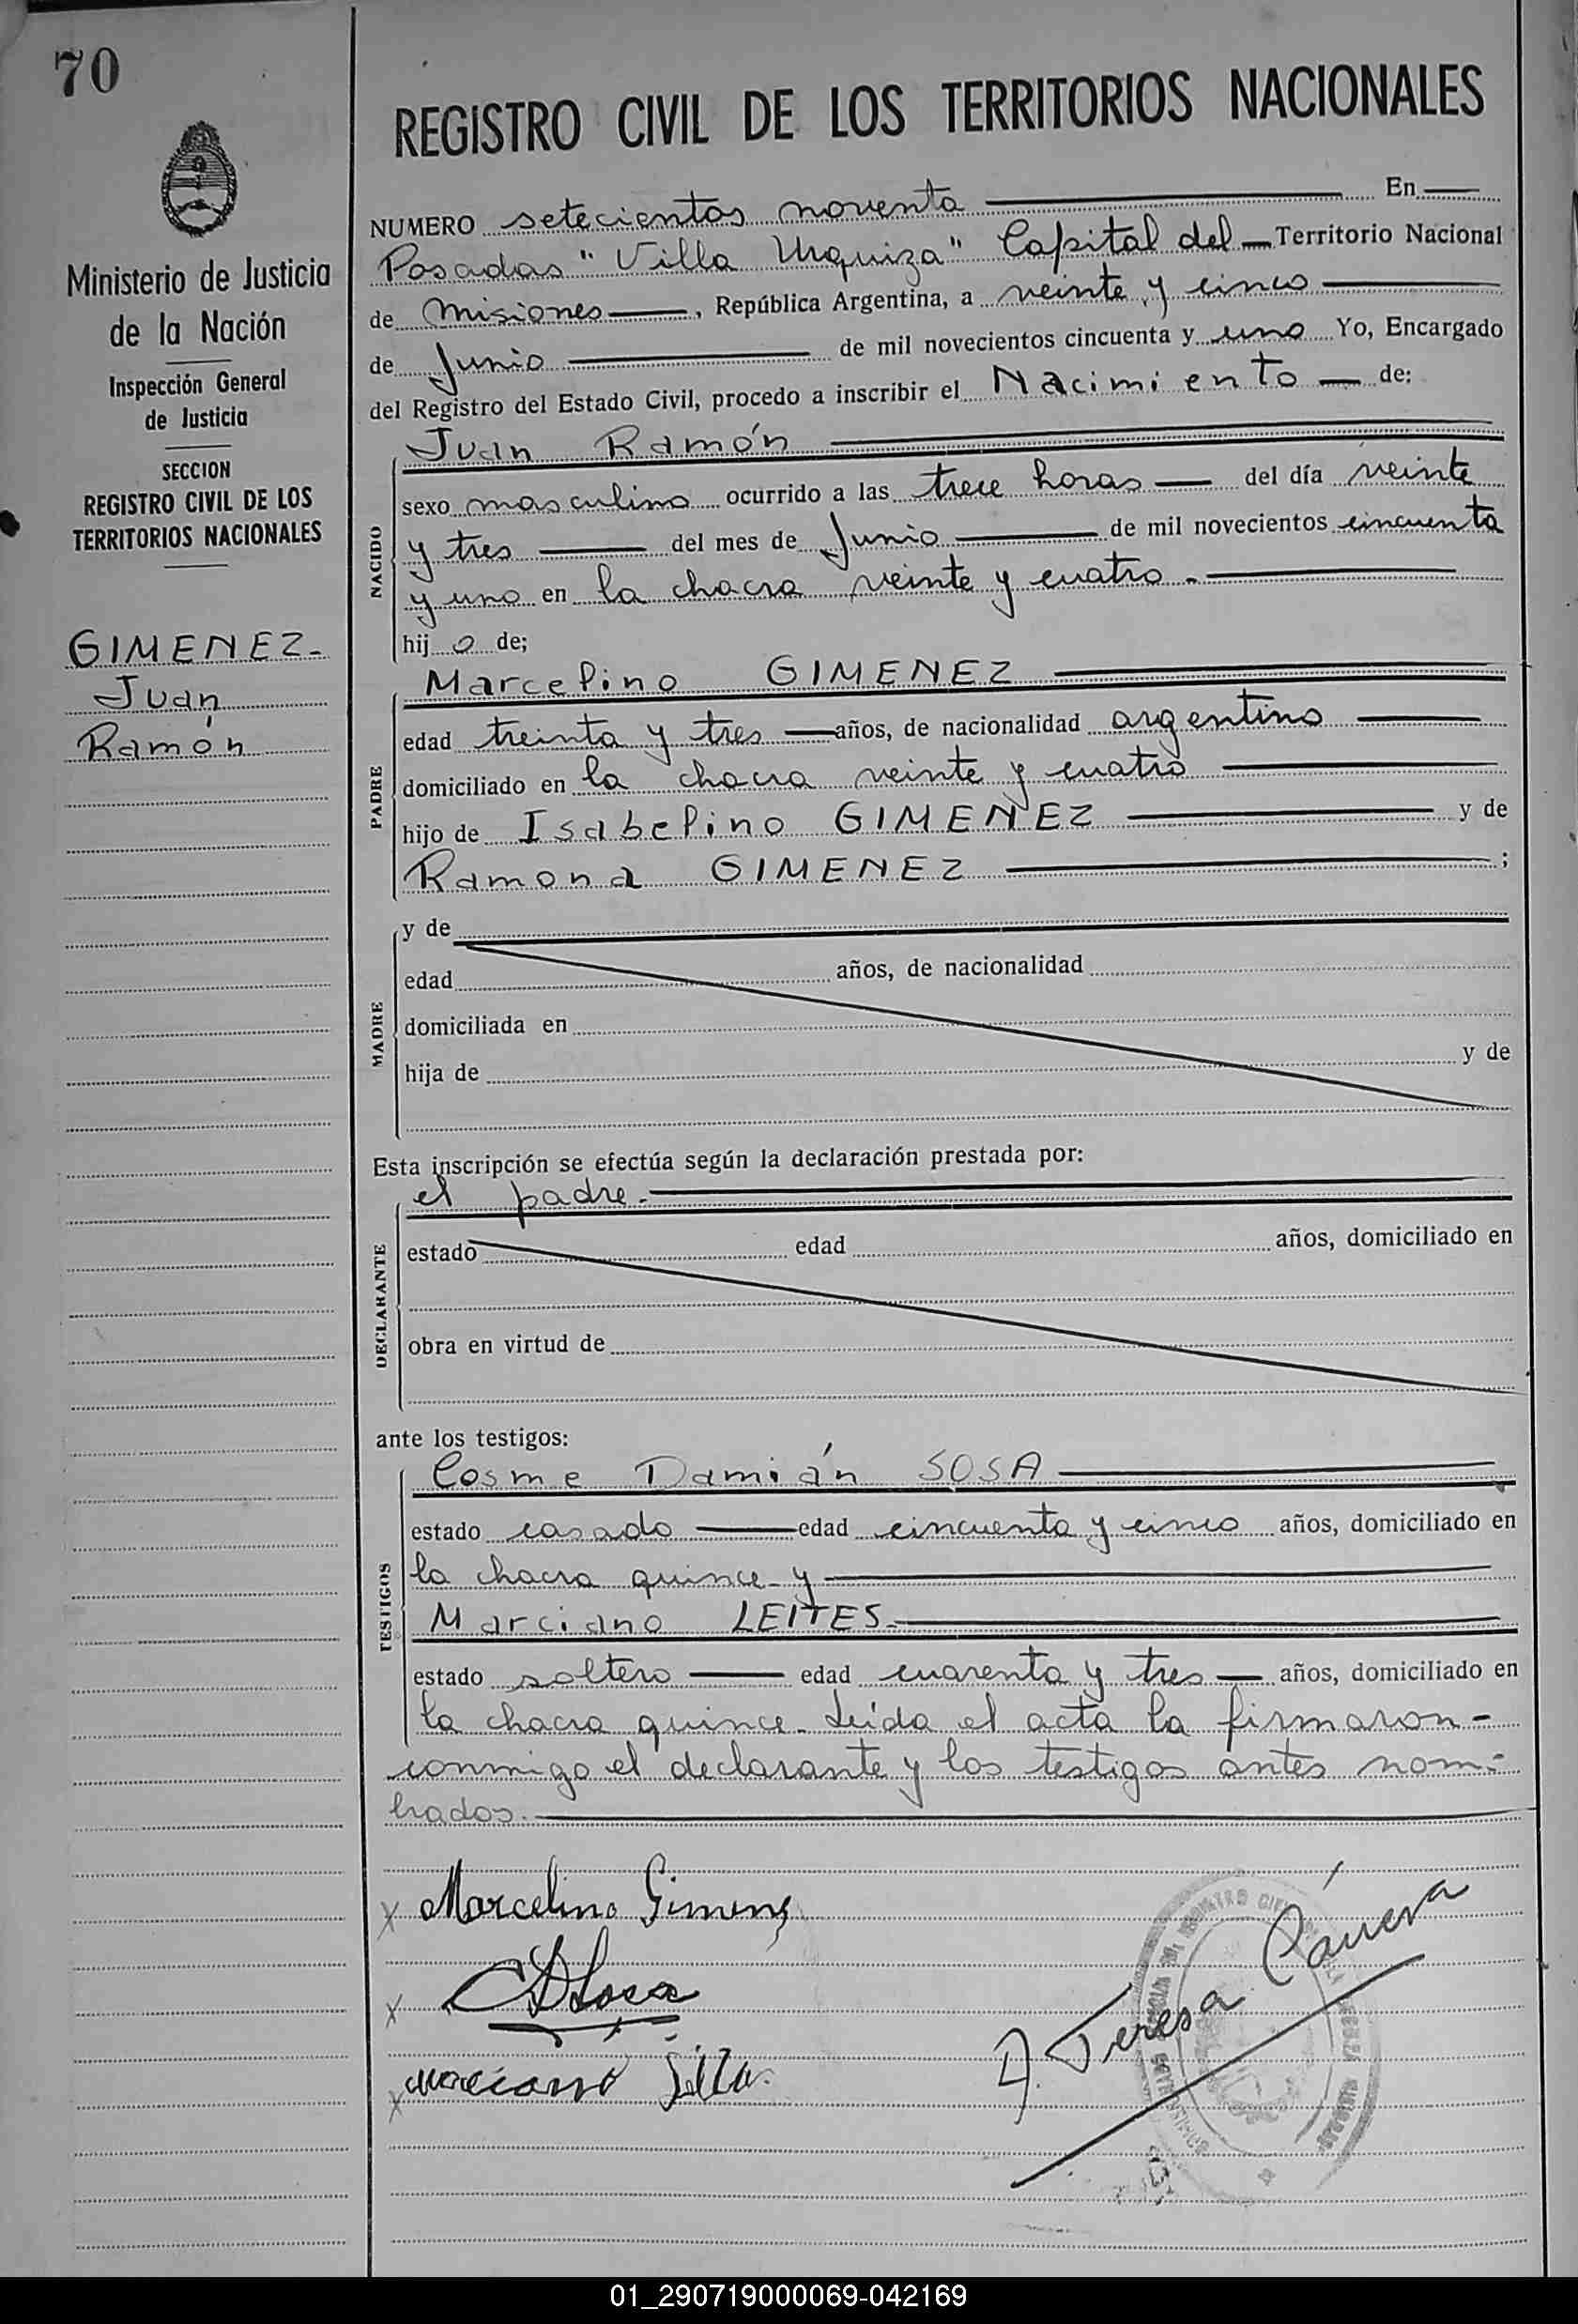 70
REGISTRO CIVIL DE LOS TERRITORIOS NACIONALES
Ministerio de Justicia
de la Nación
Inspección General
de Justicia
SECCION
REGISTRO CIVIL DE LOS
TERRITORIOS NACIONALES
GIMENEZ-
Juan
Ramón
NUMERO setecientos noventa En
Posadas "Villa Urquiza" Capital del Territorio Nacional
de Misiones, República Argentina, a veinte y cinco
de Junio de mil novecientos cincuenta y uno Yo, Encargado
del Registro del Estado Civil, procedo a inscribir el Nacimiento de:
NACIDO
Juan Ramón
sexo masculino ocurrido a las trece horas del día veinte
y tres del mes de Junio de mil novecientos cincuenta
y uno en la chacra veinte y cuatro.-
hijo de;
PADRE
Marcelino GIMENEZ
edad treinta y tres años, de nacionalidad argentino
domiciliado en la chacra veinte y cuatro
hijo de Isabelino GIMENEZ y de
Ramona GIMENEZ ;
MADRE
y de
edad años, de nacionalidad
domiciliada en
hija de y de
Esta inscripción se efectúa según la declaración prestada por:
DECLARANTE
el padre.-
estado edad años, domiciliado en
obra en virtud de
ante los testigos:
TESTIGOS
Cosme Damián SOSA
estado casado edad cincuenta y cinco años, domiciliado en
la chacra quince y
Marciano LEITES.-
estado soltero edad cuarenta y tres años, domiciliado en
la chacra quince. Leída el acta la firmaron-
conmigo el declarante y los testigos antes nom-
brados.-
x Marcelino Gimenz
x CDSosa
x Marciano
A. Teresa
01_290719000069-042169